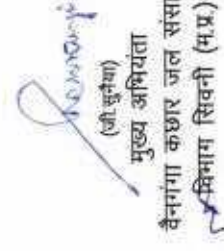 (जी. सुनैया)
मुख्य अभियंता
वैनगंगा कछार जल संसा
विभाग सिवनी (म.प्र.)